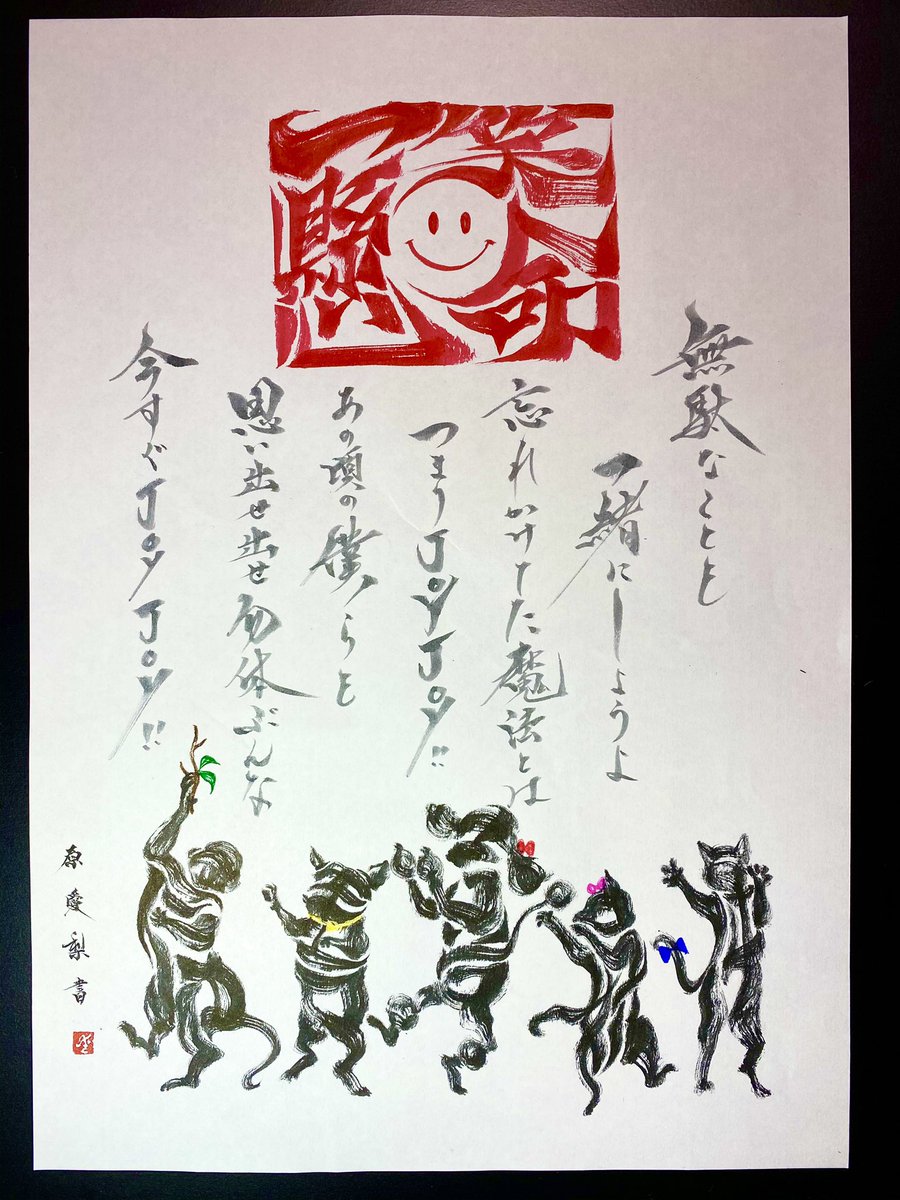 一笑懸命
無駄なことも
一緒にしようよ
忘れかけてた魔法とは
つまりJoyJoy!!
あの頃の僕らを
思い出せ出せ勿体ぶんな
今すぐJoyJoy!!
原愛梨書